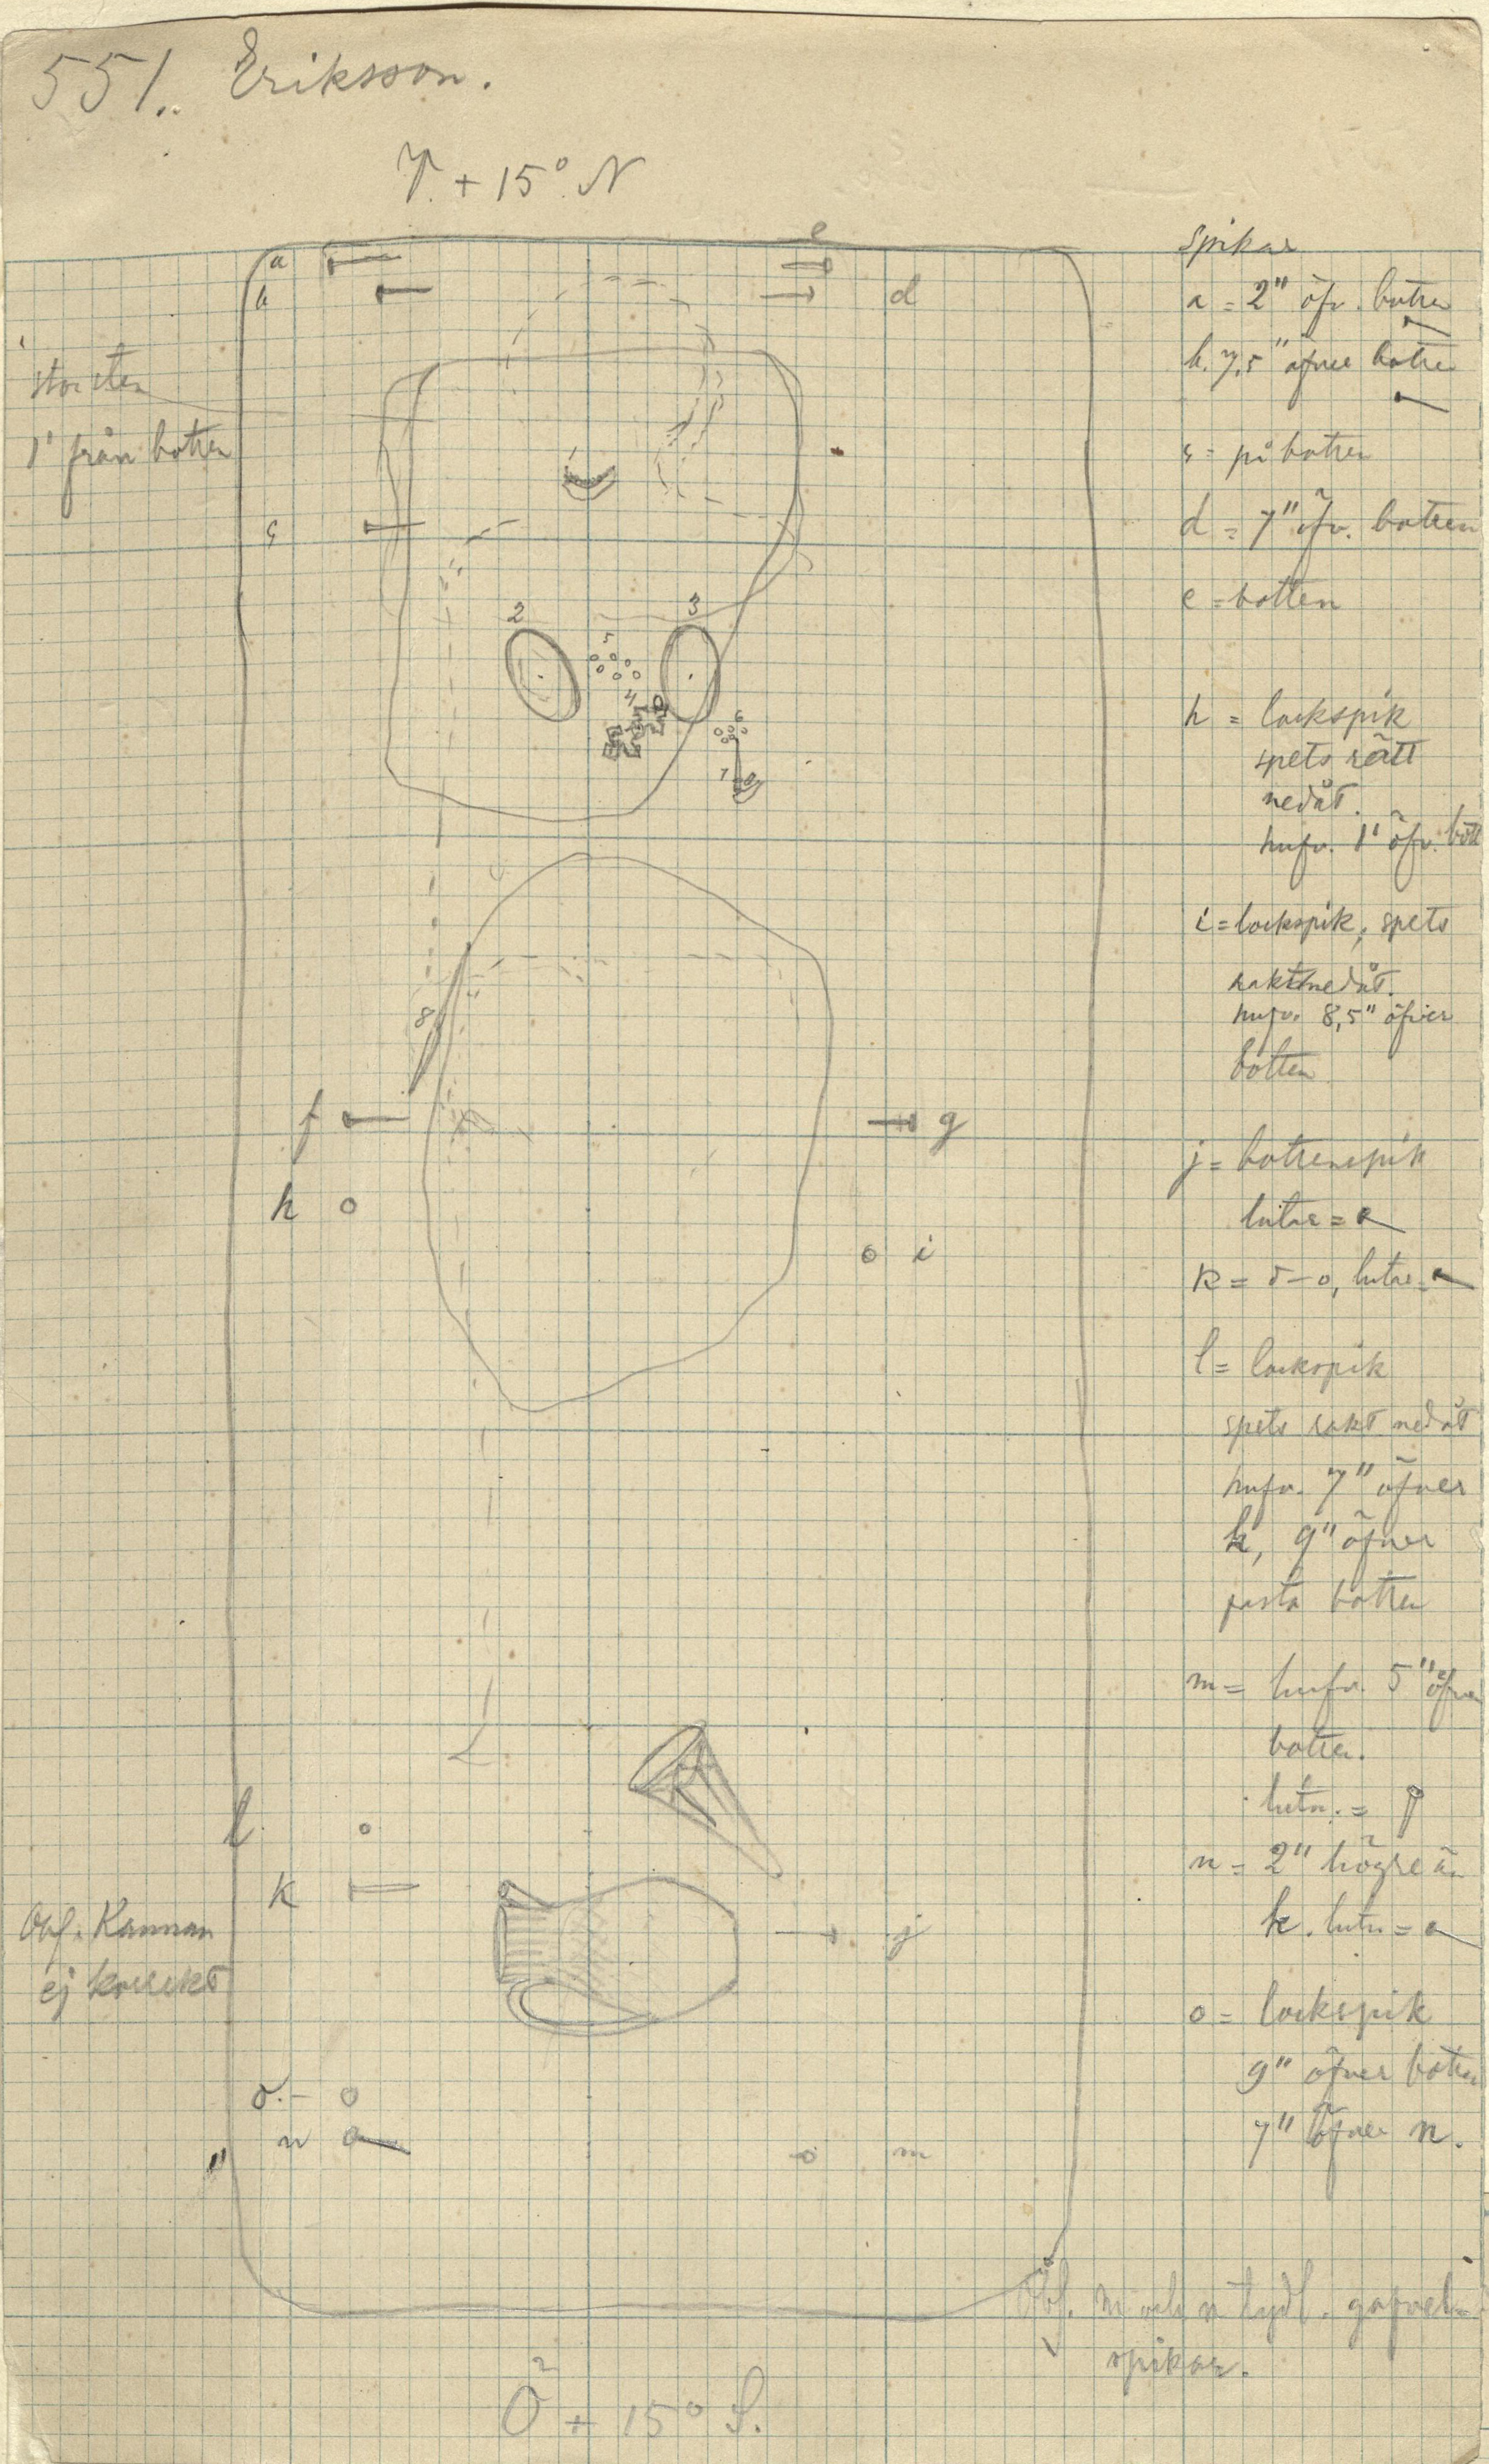 551. Eriksson.
V. + 15° N
e
a
b
d
stor sten
1' från botten
1
c
2
3
5
4
6
7
8
f
g
h
o i
l
k
j
Obs. Kannan
ej korrekt
o. -
n
m
Ö + 15° S.
Spikar
a = 2" öfv. botten
b. 7,5" öfver botten
c = på botten
d = 7" öfv. botten
e = botten
h = lockspik
spets rätt
nedåt.
hufv. 1' öfv. bott
i = lockspik, spets
rakt nedåt.
hufv. 8,5" öfver
botten
j = bottenspik
lutn =
k = o, lutn =
l = lockspik
spets rakt nedåt
hufv. 7" öfver
k, 9" öfver
botten
m = hufv. 5" öfver
botten.
lutn. =
n = 2" högre än
k. lutn =
o = lockspik
9" öfver botten
7" öfver n.
Obs. m och n tydl. gafvel-
spikar.